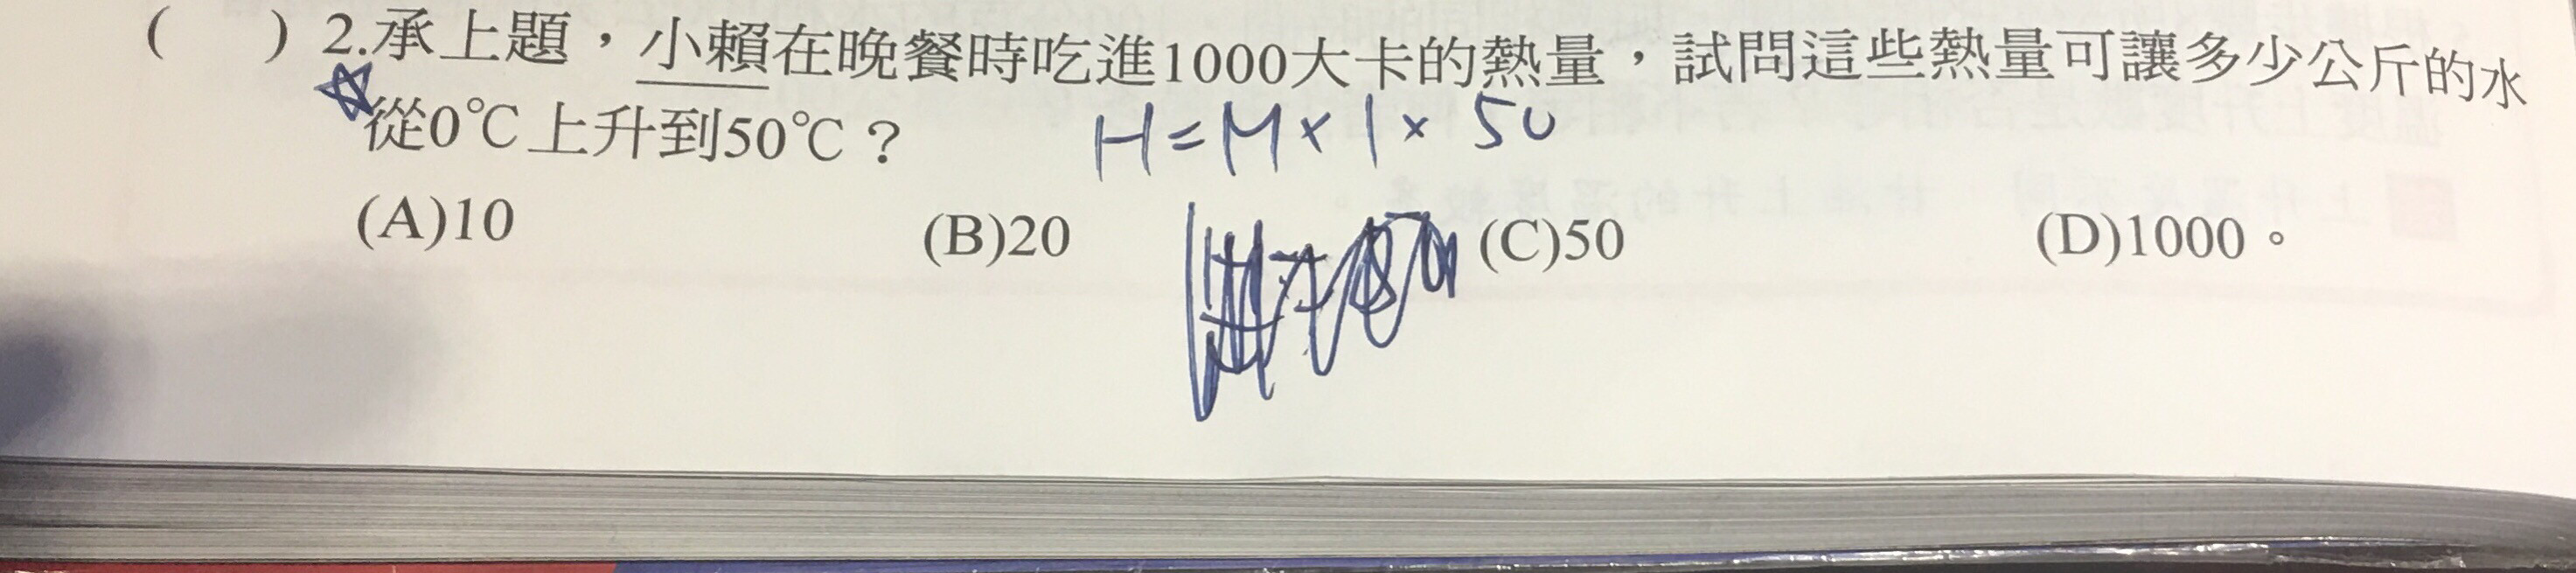 (　) 2.承上題，小賴在晚餐時吃進1000大卡的熱量，試問這些熱量可讓多少公斤的水
從0℃上升到50℃？
H=M×1×50
(A)10 (B)20 (C)50 (D)1000。